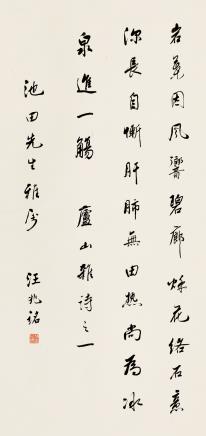 岩叢因風響碧廊爍花絡石意
深長自慚肝肺無由熱尚為冰
泉進一觴 廬山雜詩之一
池田先生雅屬
汪兆銘